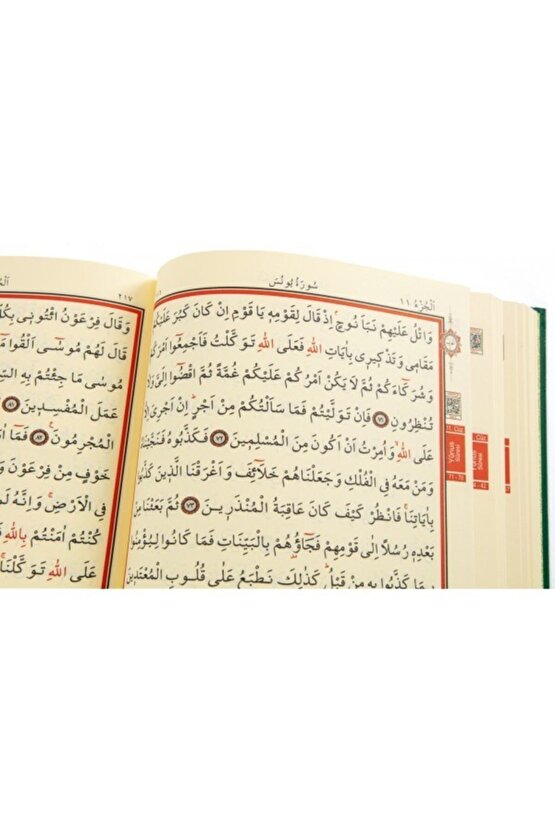 سُورَةُ يُونُسَ
اَلْجُزْءُ ١١
وَاتْلُ عَلَيْهِمْ نَبَاَ نُوحٍۢ اِذْ قَالَ لِقَوْمِه۪ يَا قَوْمِ اِنْ كَانَ كَبُرَ عَلَيْكُمْ
مَقَام۪ي وَتَذْك۪ير۪ي بِاٰيَاتِ اللّٰهِ فَعَلَى اللّٰهِ تَوَكَّلْتُ فَاَجْمِعُٓوا اَمْرَكُمْ
وَشُرَكَٓاءَكُمْ ثُمَّ لَا يَكُنْ اَمْرُكُمْ عَلَيْكُمْ غُمَّةً ثُمَّ اقْضُٓوا اِلَيَّ وَلَا
تُنْظِرُونِ ٧١ فَاِنْ تَوَلَّيْتُمْ فَمَا سَاَلْتُكُمْ مِنْ اَجْرٍۜ اِنْ اَجْرِيَ اِلَّا
عَلَى اللّٰهِۙ وَاُمِرْتُ اَنْ اَكُونَ مِنَ الْمُسْلِم۪ينَ ٧٢ فَكَذَّبُوهُ فَنَجَّيْنَاهُ
وَمَنْ مَعَهُ فِي الْفُلْكِ وَجَعَلْنَاهُمْ خَلَٓائِفَ وَاَغْرَقْنَا الَّذ۪ينَ كَذَّبُوا
بِاٰيَاتِنَاۚ فَانْظُرْ كَيْفَ كَانَ عَاقِبَةُ الْمُنْذَر۪ينَ ٧٣ ثُمَّ بَعَثْنَا مِنْ
بَعْدِه۪ رُسُلًا اِلٰى قَوْمِهِمْ فَجَٓاؤُ۫هُمْ بِالْبَيِّنَاتِ فَمَا كَانُوا لِيُؤْمِنُوا
بِمَا كَذَّبُوا بِه۪ مِنْ قَبْلُۜ كَذٰلِكَ نَطْبَعُ عَلٰى قُلُوبِ الْمُعْتَد۪ينَ
11. Cüz
Yûnus
Sûresi
71 - 78
٢١٧
وَقَالَ فِرْعَوْنُ ائْتُون۪ي بِكُلِّ
قَالَ لَهُمْ مُوسٰٓى اَلْقُوا مَٓا
مُوسٰى مَا جِئْتُمْ بِهِ
عَمَلَ الْمُفْسِد۪ينَ ٨١
الْمُجْرِمُونَ ٨٢ فَمَٓا
خَوْفٍ مِنْ فِرْعَوْنَ
فِي الْاَرْضِۚ وَاِنَّهُ
كُنْتُمْ اٰمَنْتُمْ بِاللّٰهِ
عَلَى اللّٰهِ تَوَكَّلْنَا